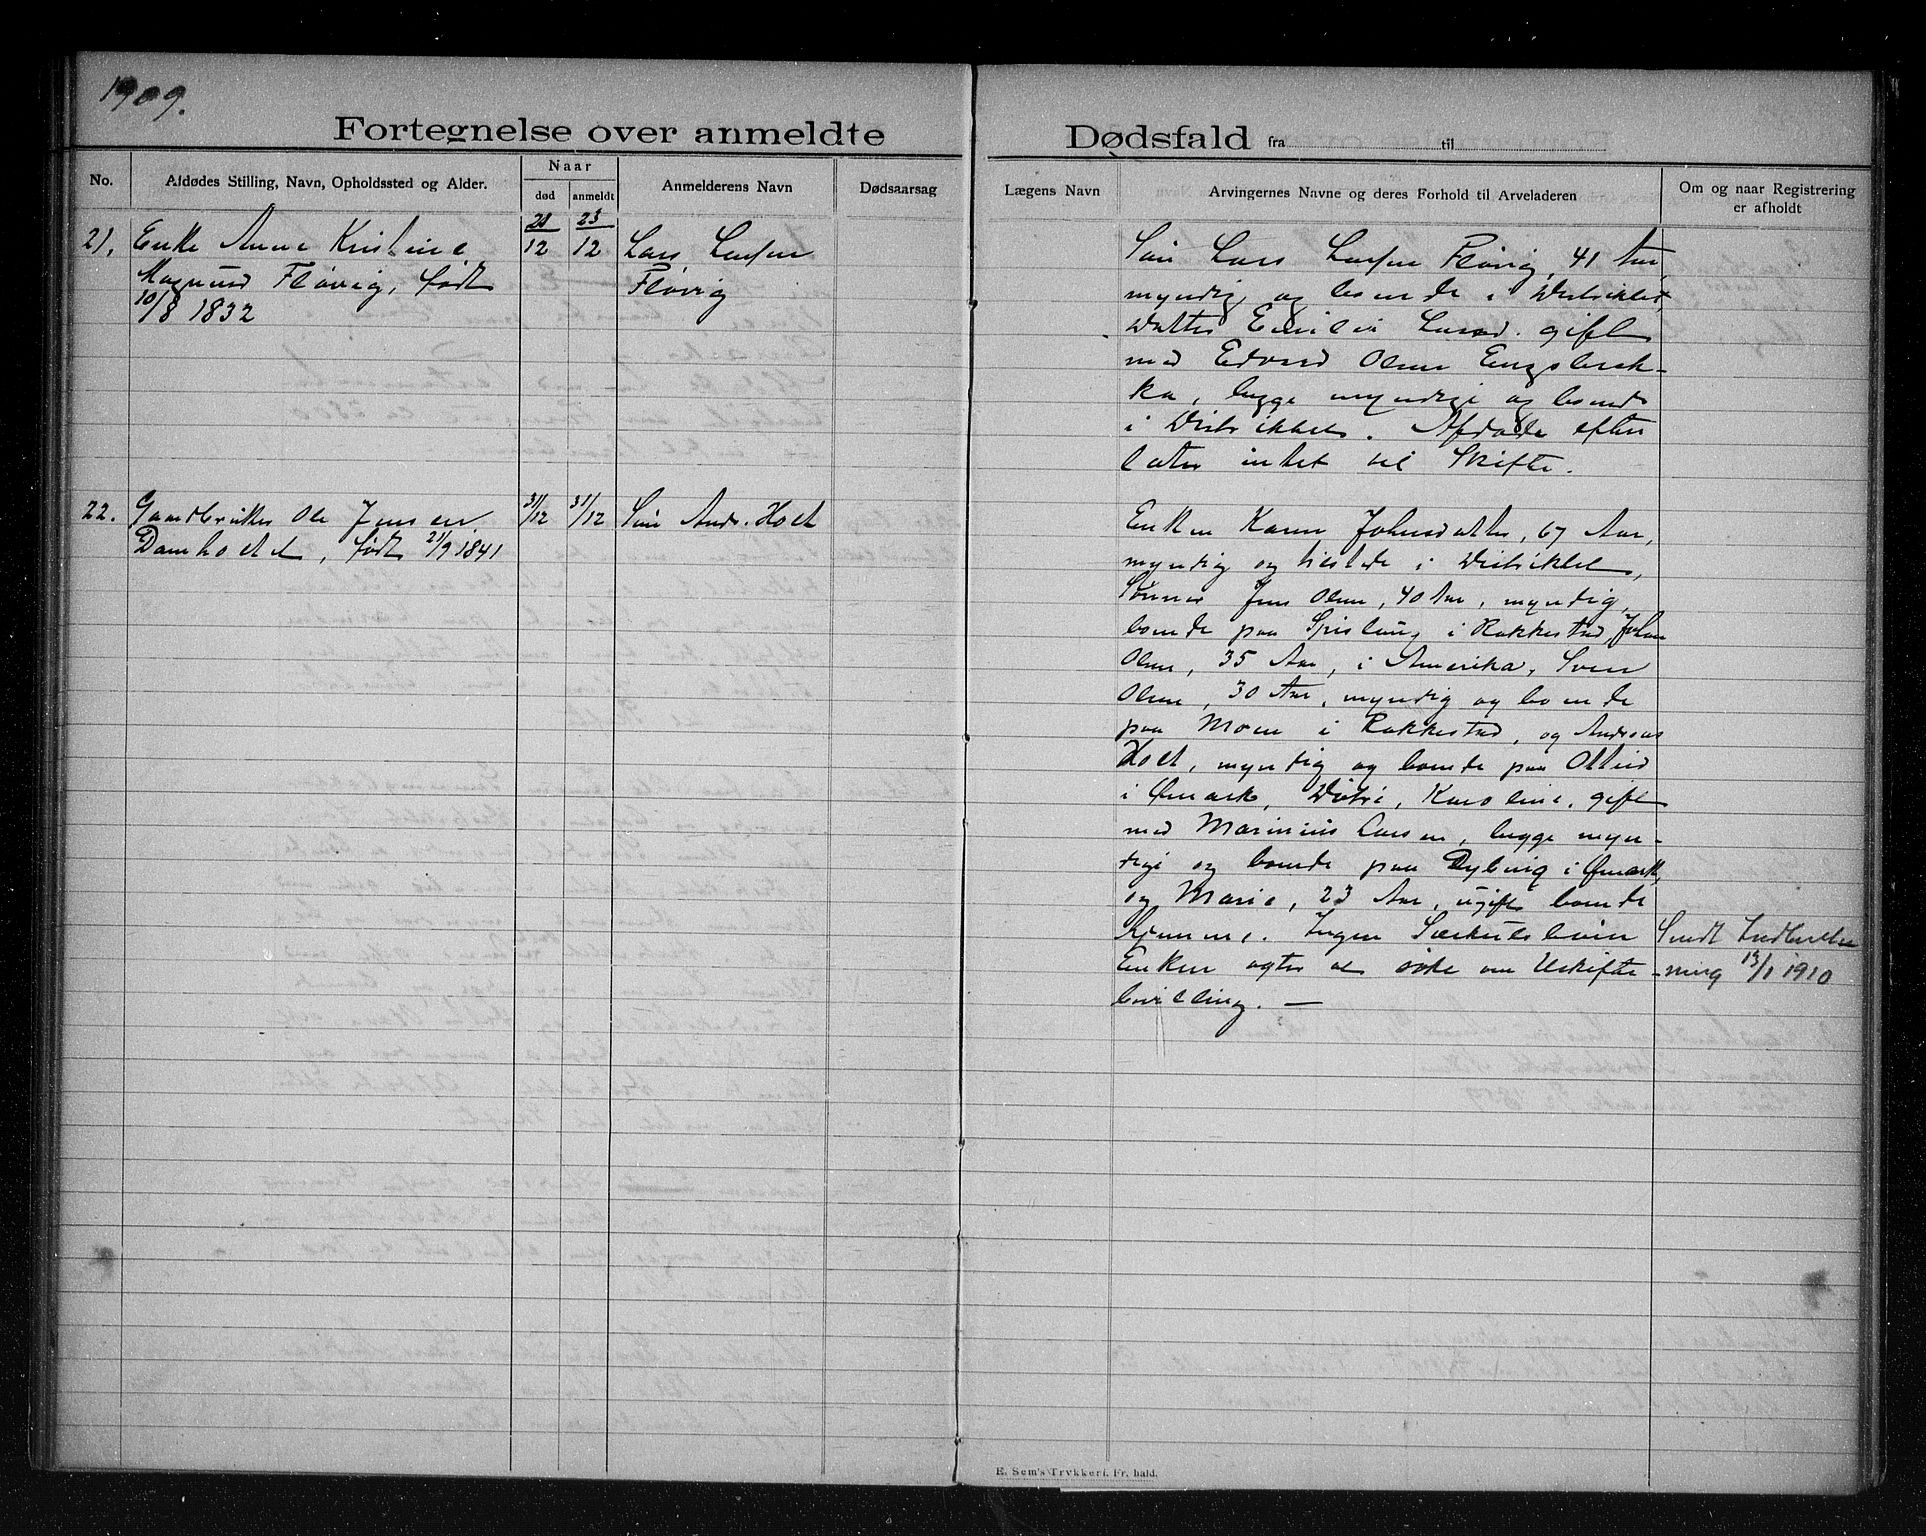 1909.
Fortegnelse over anmeldte Dødsfald fra til
No.
Afdødes Stilling, Navn, Opholdssted og Alder.
Naar
død
anmeldt
Anmelderens Navn
Dødsaarsag
Lægens Navn
Arvingernes Navne og deres Forhold til Arveladeren
Om og naar Registrering
er afholdt
21. Enke Anne Kristine
Magnusd Fløvig, født
10/8 1832
21/12 23/12
Lars Larsen
Fløvig
Søn Lars Larsen Fløvig, 41 Aar,
myndig, og boende i Distriktet,
Datter Emilie Larsd. gift
med Edvard Olsen Engsbrek-
ka, begge myndige og boende
i Distriktet. Afdøde efter
later intet til Skifte.
22. Gaardbruker Ole Jensen
Damholtet, født 21/9 1841
31/12 31/12
Søn Andr. Holt
Enken Karen Johnsdatter, 67 Aar,
myndig og tilstede i Distriktet,
Sønner Jens Olsen, 40 Aar, myndig,
boende paa Spislaug i Rakkestad, Johan
Olsen, 35 Aar, i Amerika, Sven
Olsen, 30 Aar, myndig og boende
paa Moen i Rakkestad, og Andreas
Holt, myndig og boende paa Otteid
i Ømark, Døtre, Karoline, gift
med Marinius Larsen, begge myn-
dige og boende paa Dybvig i Ømark,
og Marie, 23 Aar, ugift boende
hjemme. Ingen Særkulsbørn
Enken agter at søke om Uskifte-
bevilling. —
Sendt Indberet-
ning 13/1 1910
E. Sem's Trykkeri. Fr. hald.